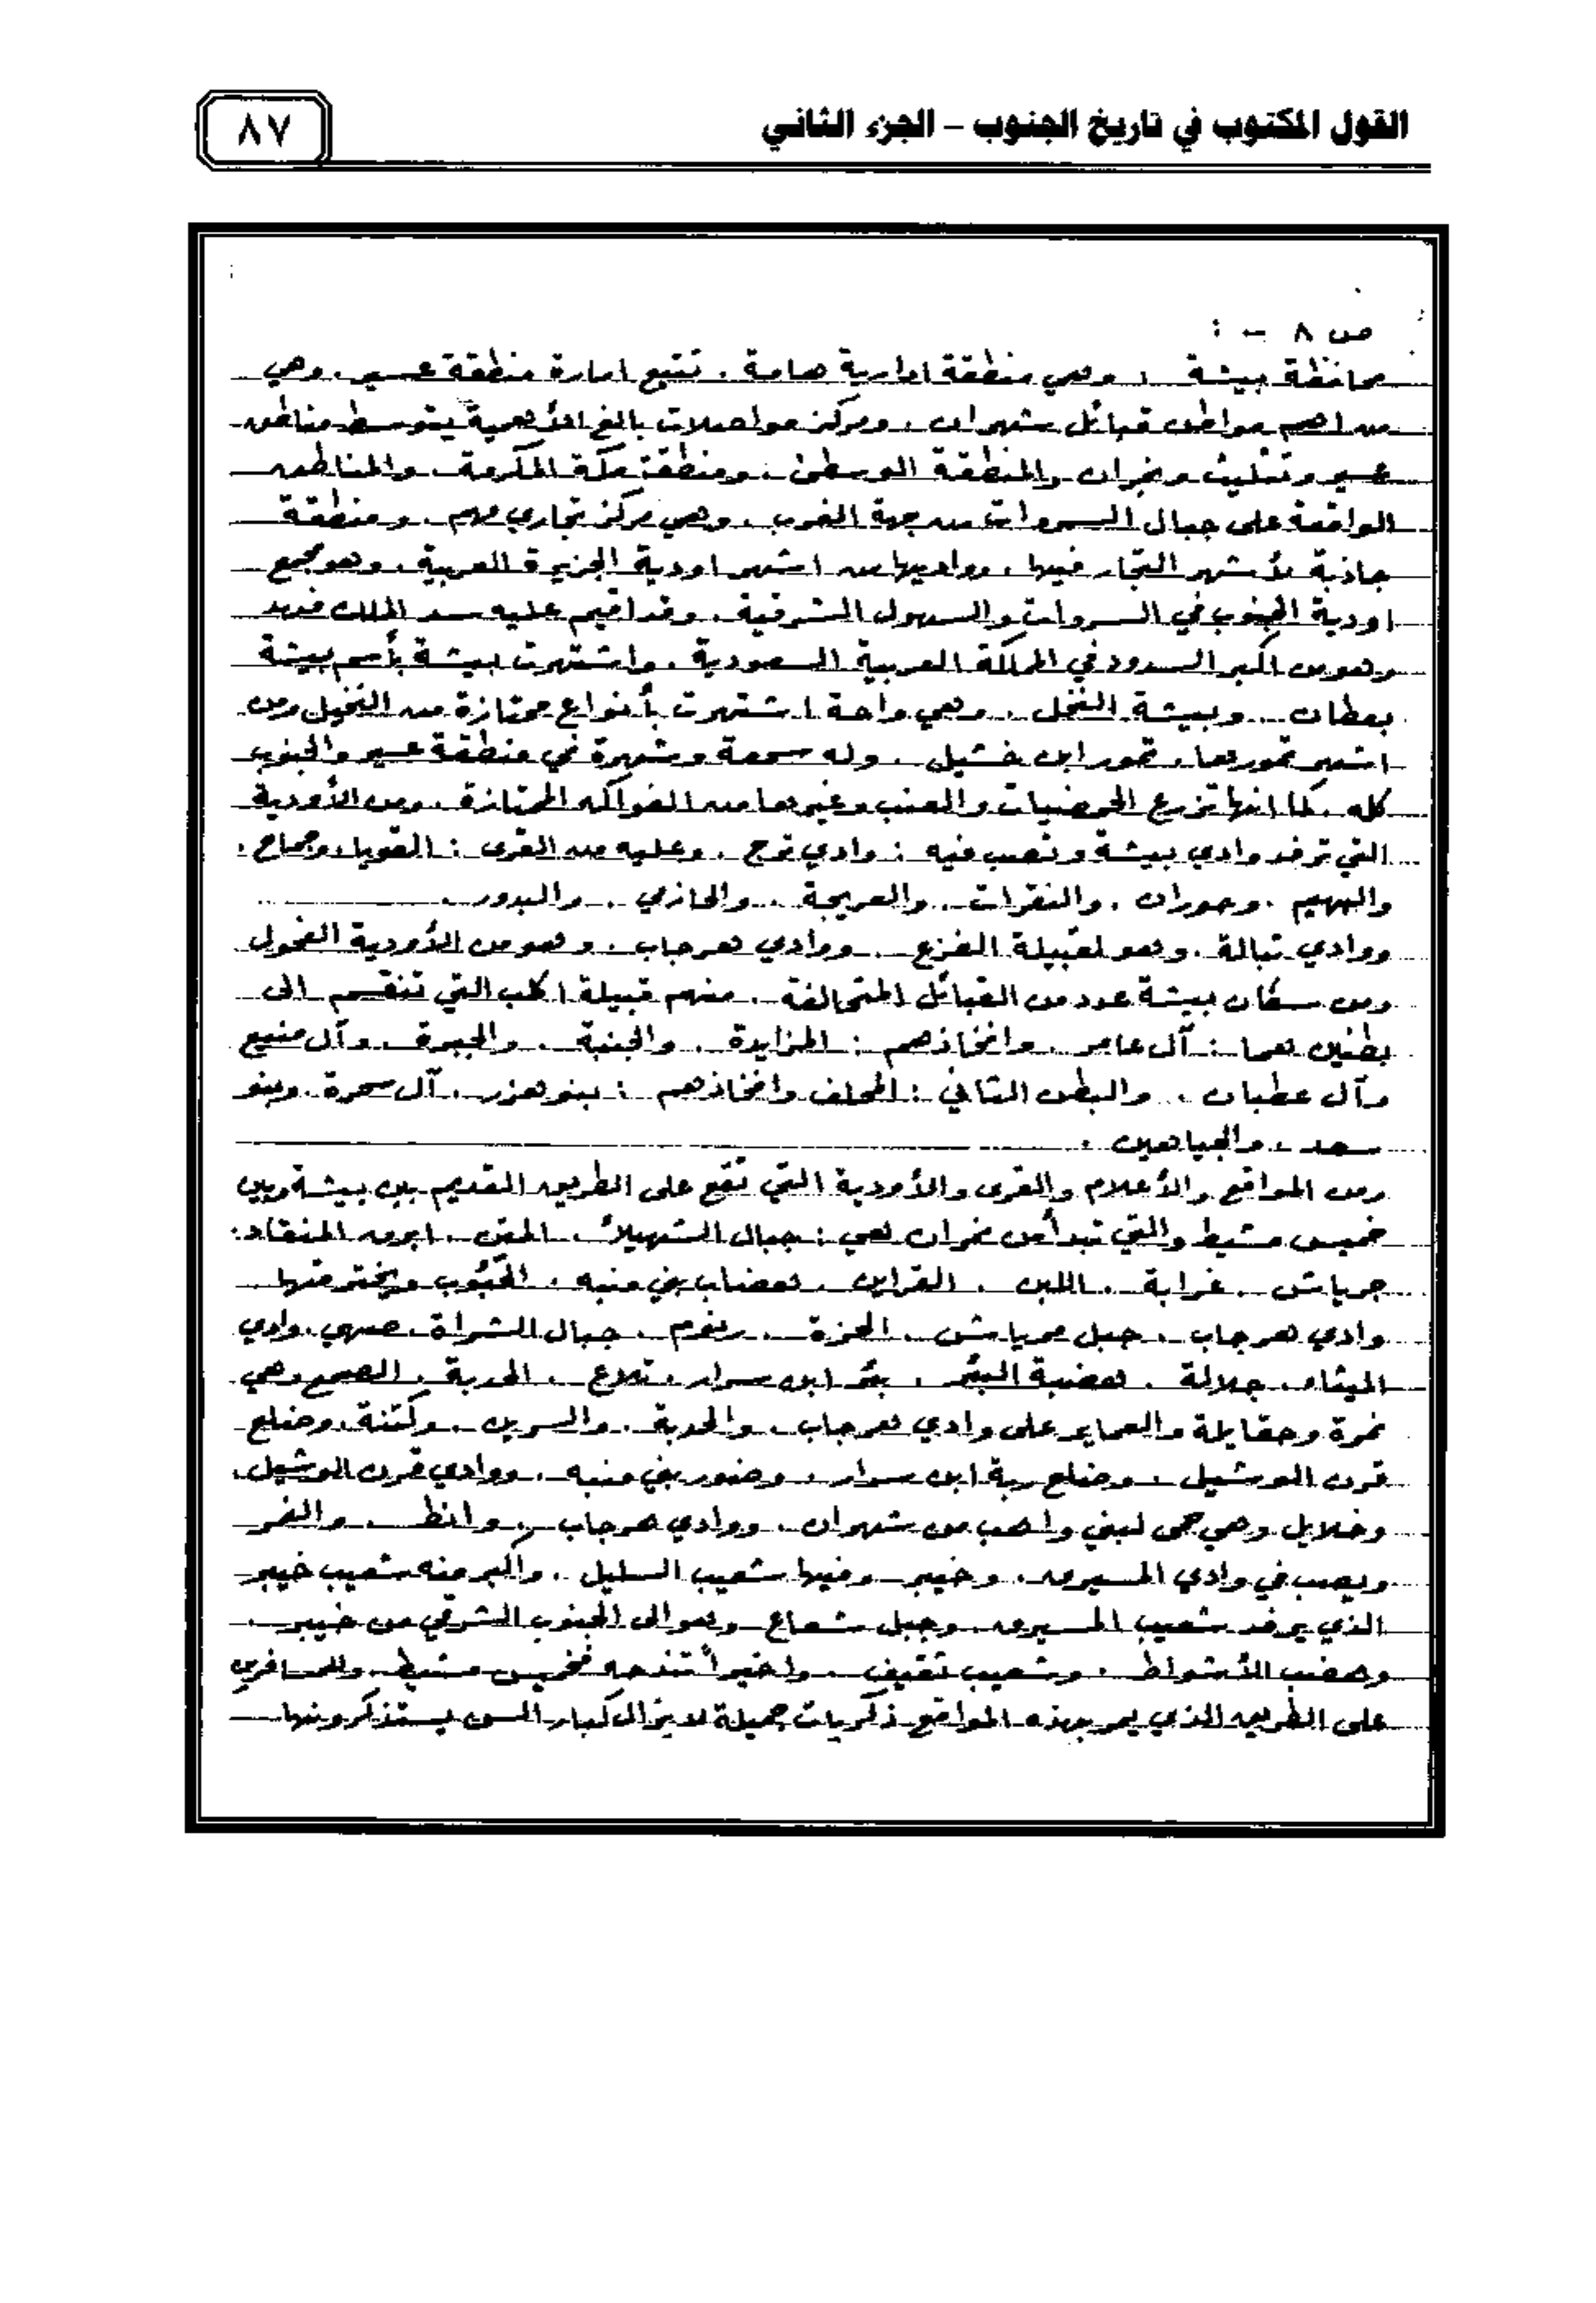 القول المكتوب في تاريخ الجنوب – الجزء الثاني
٨٧
ص ٨ - :
محافظة بيشة : وهي منطقة ادارية هامة . تتبع امارة منطقة عسير . وهي
من اهم مواطن قبائل شهران . ومركز مواصلات بالغ الأهمية يتوسط مناطق
عسير وتثليث ونجران والمنطقة الوسطى . ومنطقة مكة المكرمة . والمناطق
الواقعة على جبال السروات من جهة الغرب . وهي مركز تجاري مهم . ومنطقة
جاذبة لأشهر التجار فيها . وواديها من اشهر اودية الجزيرة العربية . وهو مجمع
اودية الجنوب في السروات والسهول الشرقية . وقد اقيم عليه سد الملك فهد
وهو من اكبر السدود في المملكة العربية السعودية . واشتهرت بيشة بأسم بيشة
بعطان .. وبيشة النخل . وهي واحة اشتهرت بأنواع ممتازة من النخيل ومن
اشهر تمورها . تمور ابن خشيل . وله سمعة وشهرة في منطقة عسير والجنوب
كله . كما انها تزرع الحمضيات والعنب وغيرها من الفواكه الممتازة . ومن الأودية
التي ترفد وادي بيشة وتصب فيه : وادي ترج . وعليه من القرى : القوبا . وجماح .
والبهيم . وحوران . والنقرات . والعريجة .. والحازمي .. والبدور .
ووادي تبالة . وهو لقبيلة الفزع .. ووادي هرجاب . وهو من الأودية الفحول
ومن سكان بيشة عدد من القبائل المتحالفة . منهم قبيلة اكلب التي تنقسم الى
بطنين هما : آل عامر . وافخاذهم : المزايدة . والجنبة . والجبرة . وآل منيع
وآل عطيان . والبطن الثاني : المحلف وافخاذهم : بنو هزر . آل سمرة . وبنو
سعد . والجياهين .
ومن المواقع والأعلام والقرى والأودية التي تقع على الطريق القديم بين بيشة وبين
خميس مشيط والتي تبدأ من نمران هي : جبال الشهيلأ . المتن . ابرق المنقاد .
جرياش . غرابة .. اللبن . القراين . هضاب بني منبه . الحبوب ويخترقها
وادي هرجاب . جبل مرياش . الحزة . رنوم . جبال الشراة . صهي . وادي
الميثاء . جلالة . هضبة البئر . بئر ابن سرار . تلاع . الحدبة . الصبح وهي
نمرة وحقايلة والعماير على وادي هرجاب . والحدبة . والسرين . وكتنة . وضلع
قرن الوشيل . وضلع ربة ابن سرار . وضور بني منبه . ووادي قرن الوشيل .
وخلايل وهي حمى لبني واهب من شهران . ووادي هرجاب . وانظ . والغر
ويصب في وادي المسيرق . وخيبر . وفيها شعيب السليل . واكبر منه شعيب خيبر
الذي يرفد شعيب المسيرق . وجبل شعاع وهو الى الجنوب الشرقي من خيبر .
وهضب الأشواط . وشعيب ثقيف . واخيراً تندحه فخميس مشيط . وللمسافرين
على الطريق الذي يمر بهذه المواقع ذكريات جميلة لا يزال كبار السن يستذكرونها